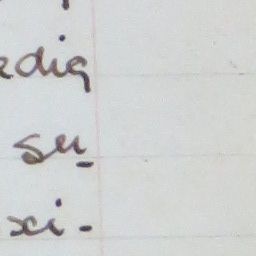 edig
su
xi-